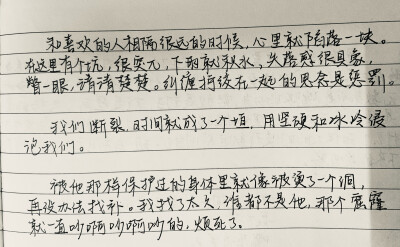 和喜欢的人相隔很远的时候，心里就陷落一块。
在这里有个坑，很突兀，下雨就积水，失落感很具象，
瞥一眼，清清楚楚。纠缠拧绞在一起的思念是惩罚。
我们断裂，时间就成了个坦，用坚硬和冰冷浸
泡我们。
被他那样保护过的身体里就像被烫了一个洞，
再没办法找补。我找了太久，谁都不是他，那个窟窿
就一直吵啊吵啊吵的，烦死了。